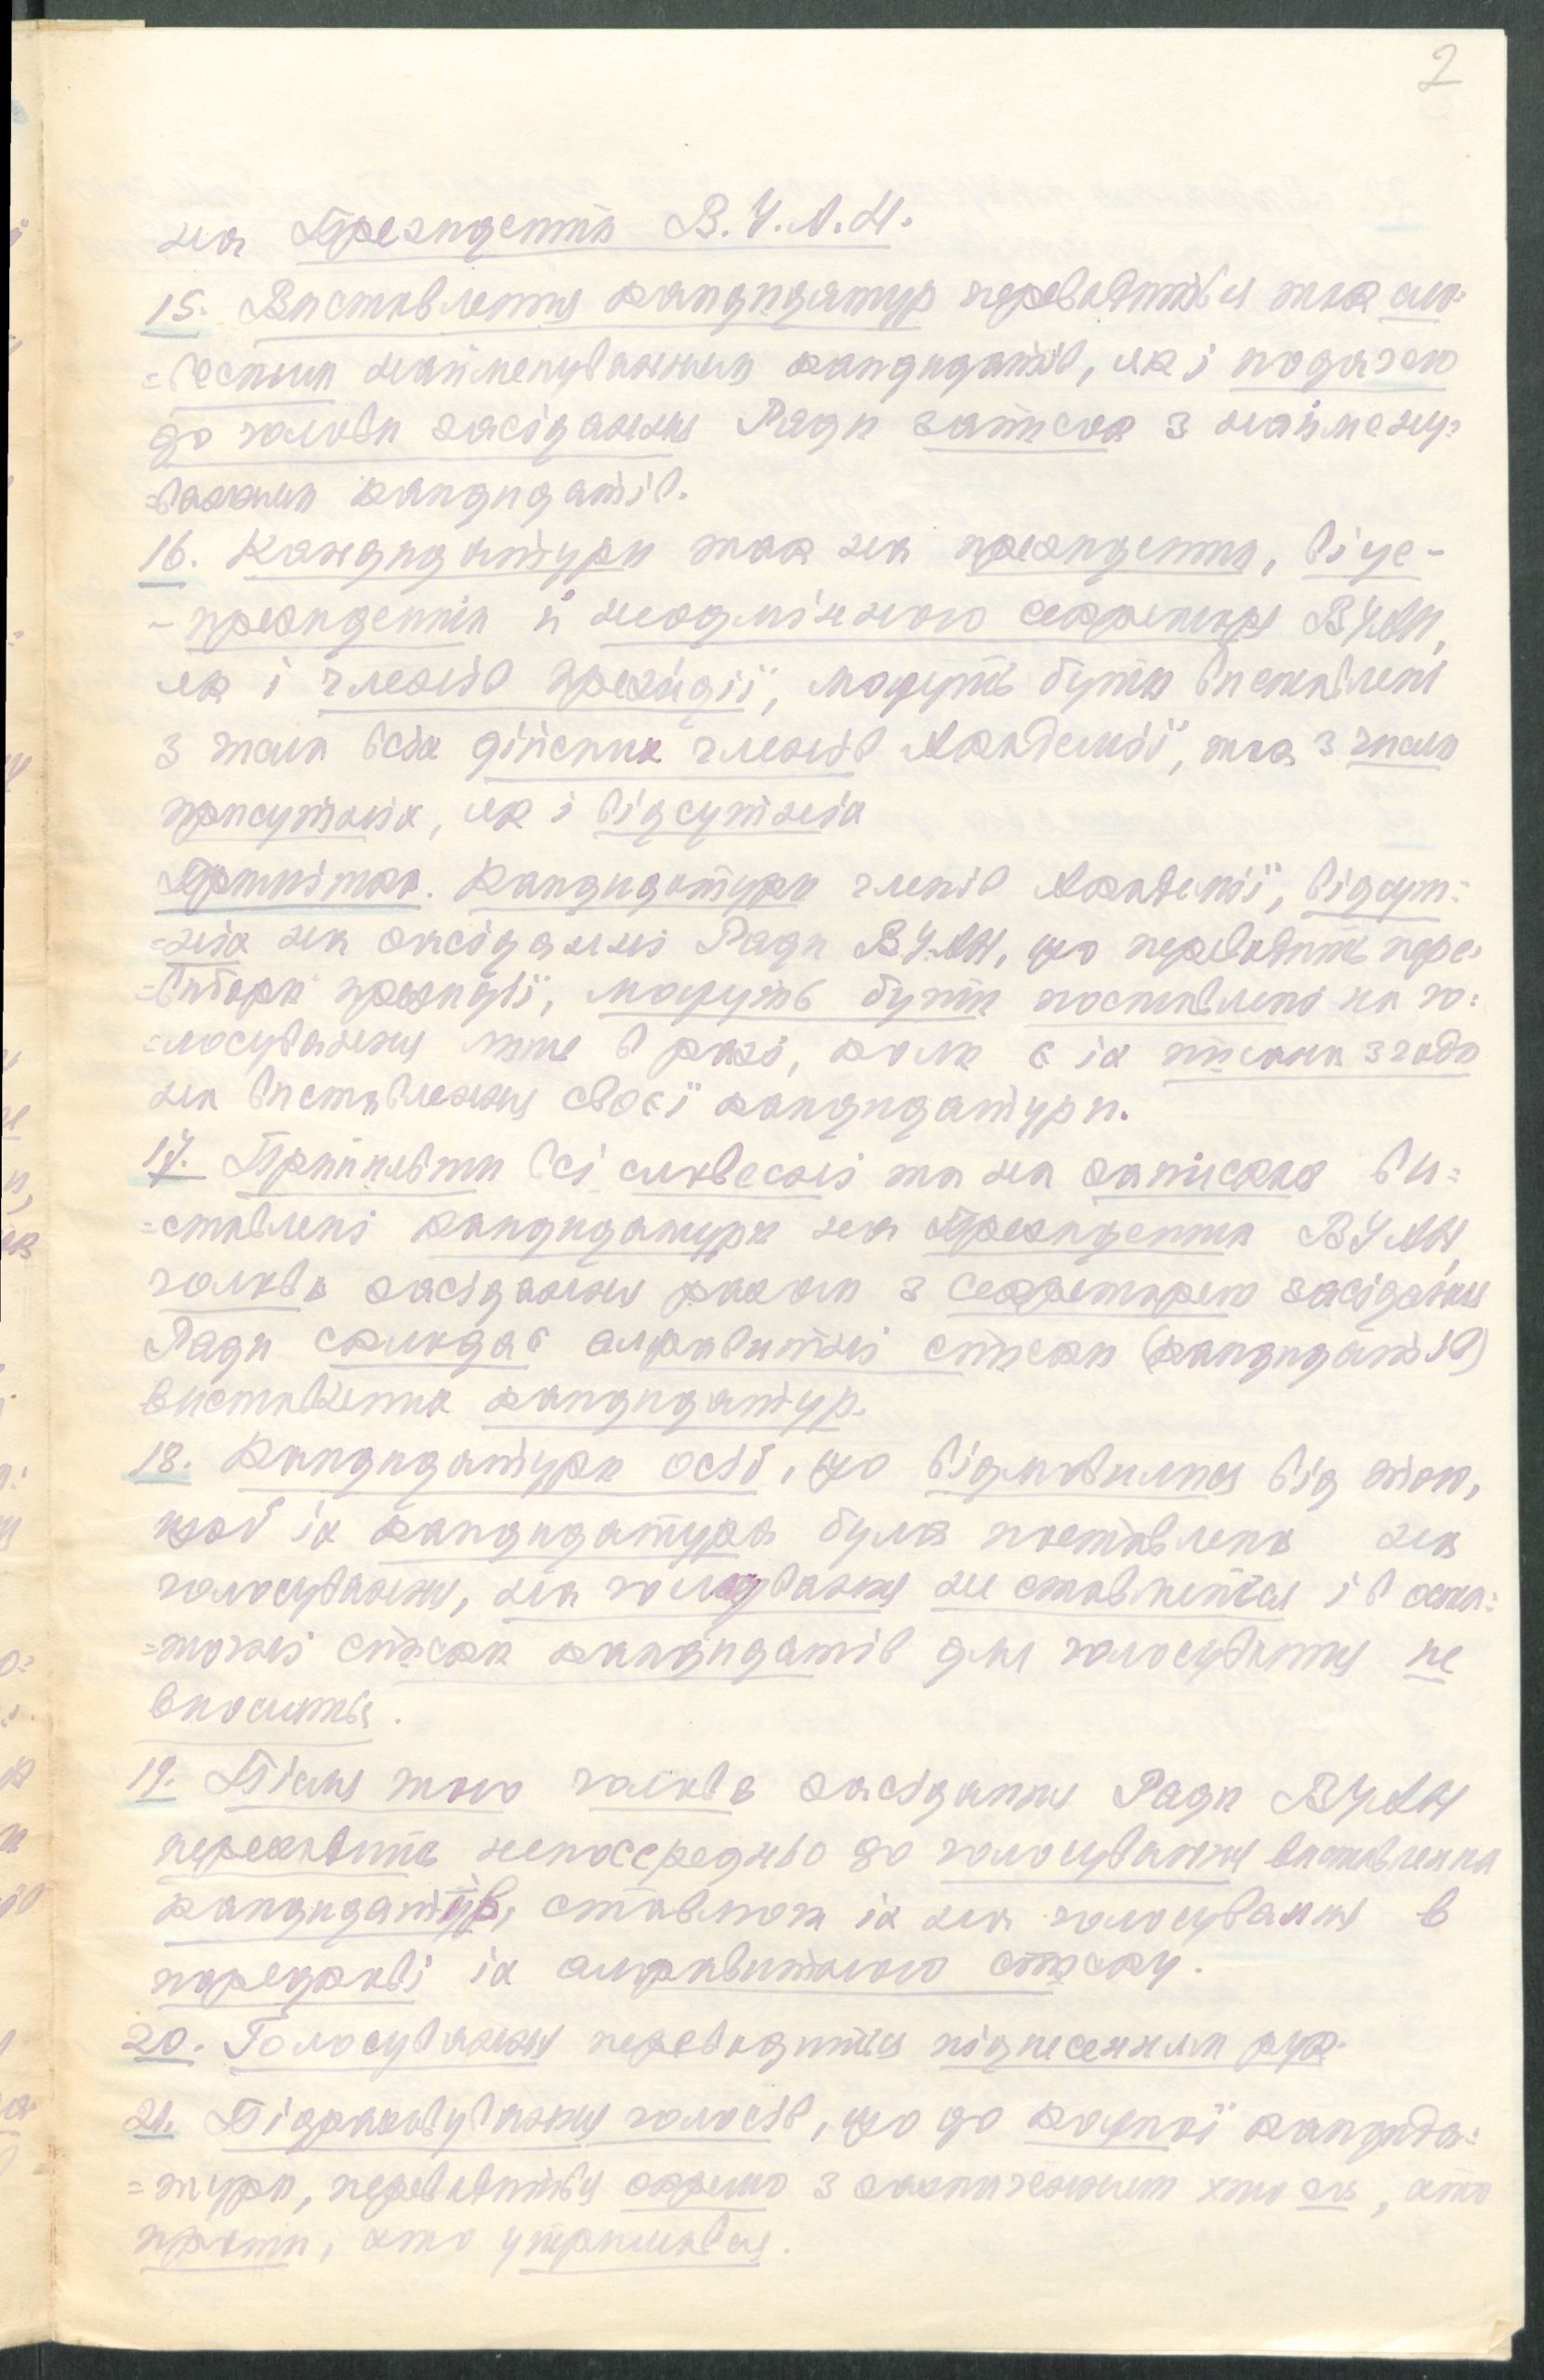 2
на Президента В.У.А.Н.
15. Виставлення кандидатур переводиться так сло=
=весним найменуванням кандидатів, як і подачею
до голови засідання Ради записок з наймену=
=ванням кандидатів.
16. Кандидатури так на президента, віце-
-президента й неодмінного секретаря ВУАН,
як і членів президії, можуть бути виставлені
з
всіх дійсних членів Академії, так з числа
присутніх, як і відсутніх
Примітка. Кандидатури членів Академії, відсут=
=ніх на засіданні Ради ВУАН, що переводить пере=
=вибори президії, можуть бути поставлені на го=
=лосування лише в разі, коли є їх письмна згода
на виставлення своєї кандидатури.
17. Прийнявши всі словесні та на записках ви=
=ставлені кандидатури на Президента ВУАН,
голова засідання разом з секретарем засідання
Ради складає алфавитні списки (кандидатів)
виставлених кандидатур.
18. Кандидатури осіб, що відмовилися від того,
щоб їх кандидатура була поставлена на
голосування, на голосування не ставляться і в оста=
=точні списки кандидатів для голосування не
вносяться.
19. Після того голова засідання Ради ВУАН
переходить непосредньо до голосування виставлених
кандидатур, ставлячи їх на голосування в
порядкові їх алфавитного списку.
20. Голосування переводиться піднесенням рук.
21. Підраховування голосів, що до кожної кандида=
=тури, переводиться окремо з зазначенням хто за, хто
проти, хто утримався.